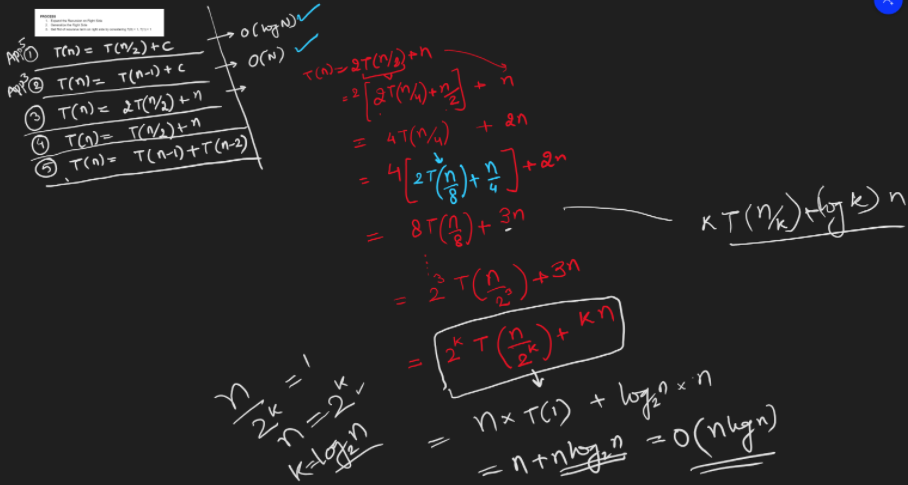 PROCESS
1. Expand the Recursion on Right Side
2. Generalize the Right Side
App5 ① T(n) = T(n/2) + c → O(log N) ✓
App3 ② T(n) = T(n-1) + c → O(N) ✓
③ T(n) = 2T(n/2) + n →
④ T(n) = T(n/2) + n
⑤ T(n) = T(n-1) + T(n-2)
T(n) = 2T(n/2) + n
= 2[2T(n/4) + n/2] + n
= 4T(n/4) + 2n
= 4[2T(n/8) + n/4] + 2n
= 8T(n/8) + 3n
K T(n/k) + (log k) n
= 2^3 T(n/2^3) + 3n
= 2^k T(n/2^k) + kn
n/2^k = 1
n = 2^k ✓
k = log₂n
= n × T(1) + log₂n × n
= n + n log₂n = O(n log n)